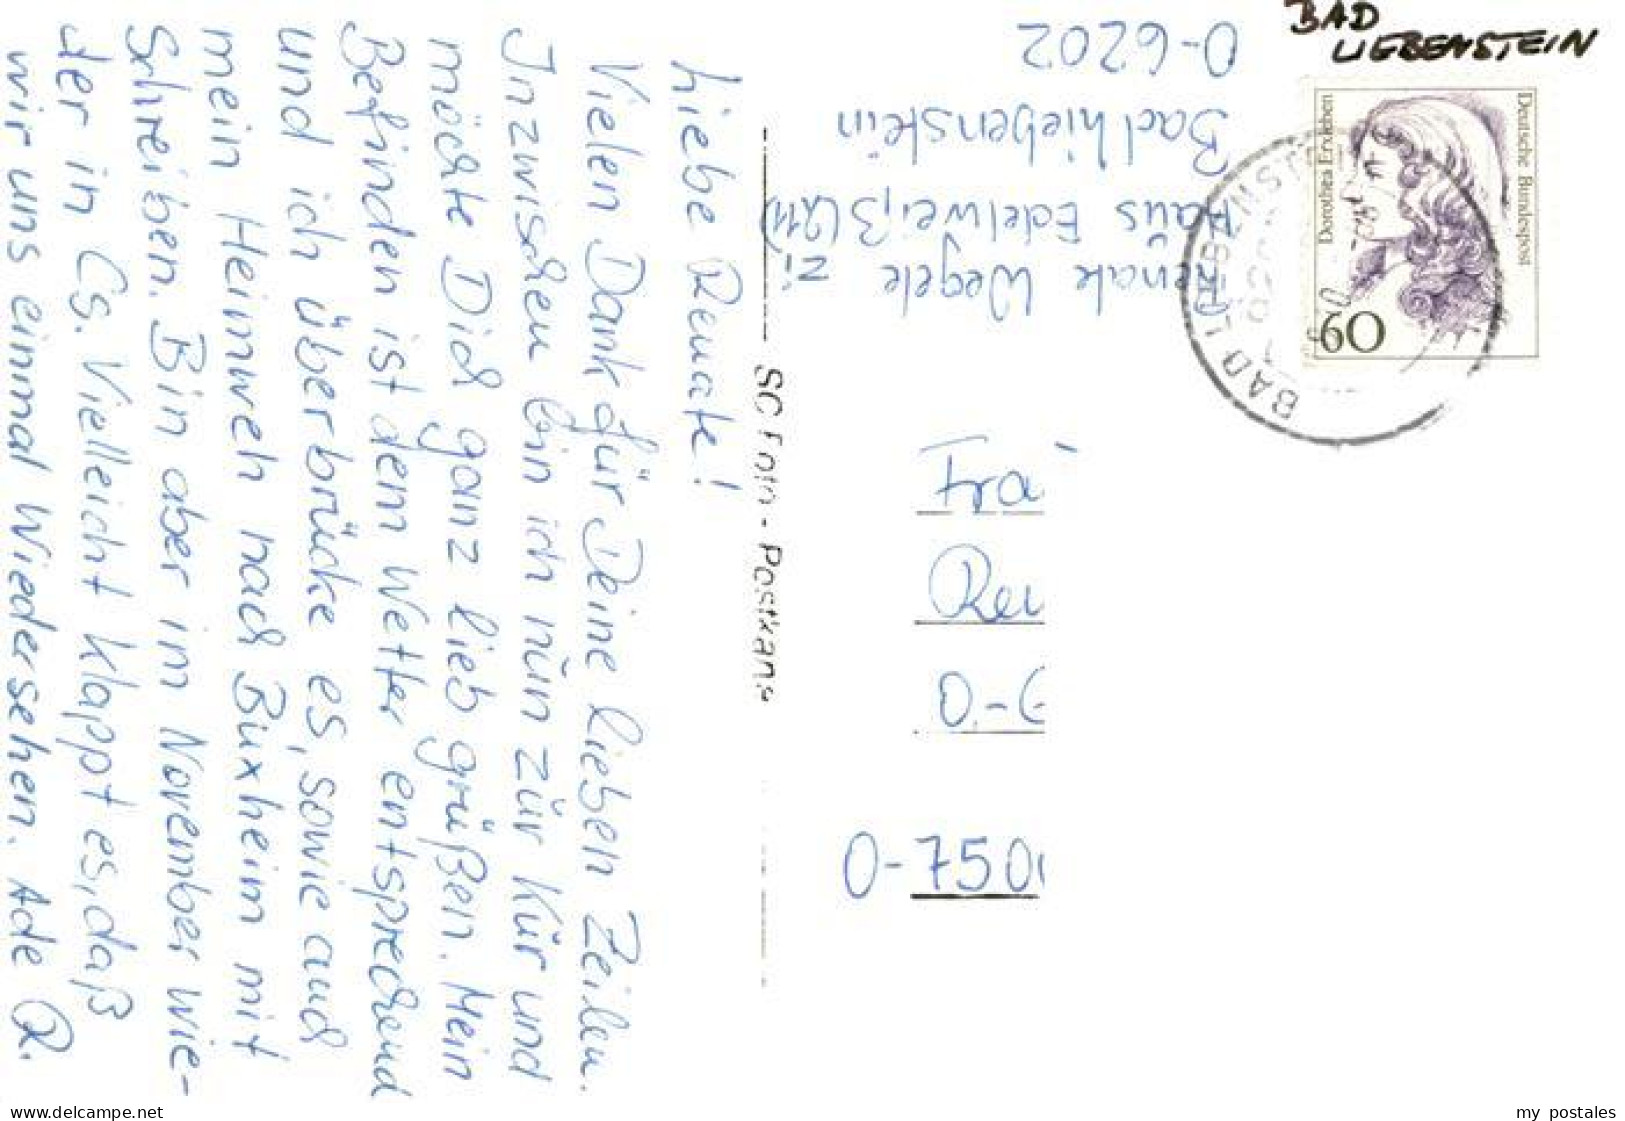 Liebe Renate!
Vielen Dank für Deine lieben Zeilen.
Inzwischen bin ich nün zür Kür und
möchte Dich ganz lieb grüßen. Mein
Befinden ist dem Wetter entsprechend
und ich überbrücke es, sowie auch
mein Heimweh nach Buxheim mit
Schreiben. Bin aber im November wie-
der in Cs. Vielleicht klappt es, daß
wir uns einmal Wiedersehen. Ade R.
Foto - Postkarte
Renate Wegele
Haüs Edelweiß (211)
Zi
Bad Liebenstein
O-6202
BAD
LIEBENSTEIN
Deutsche Bundespost
Dorothea Erxleben
60
BAD
Fra
Ren
O-
O-750
www.delcampe.net
my postales